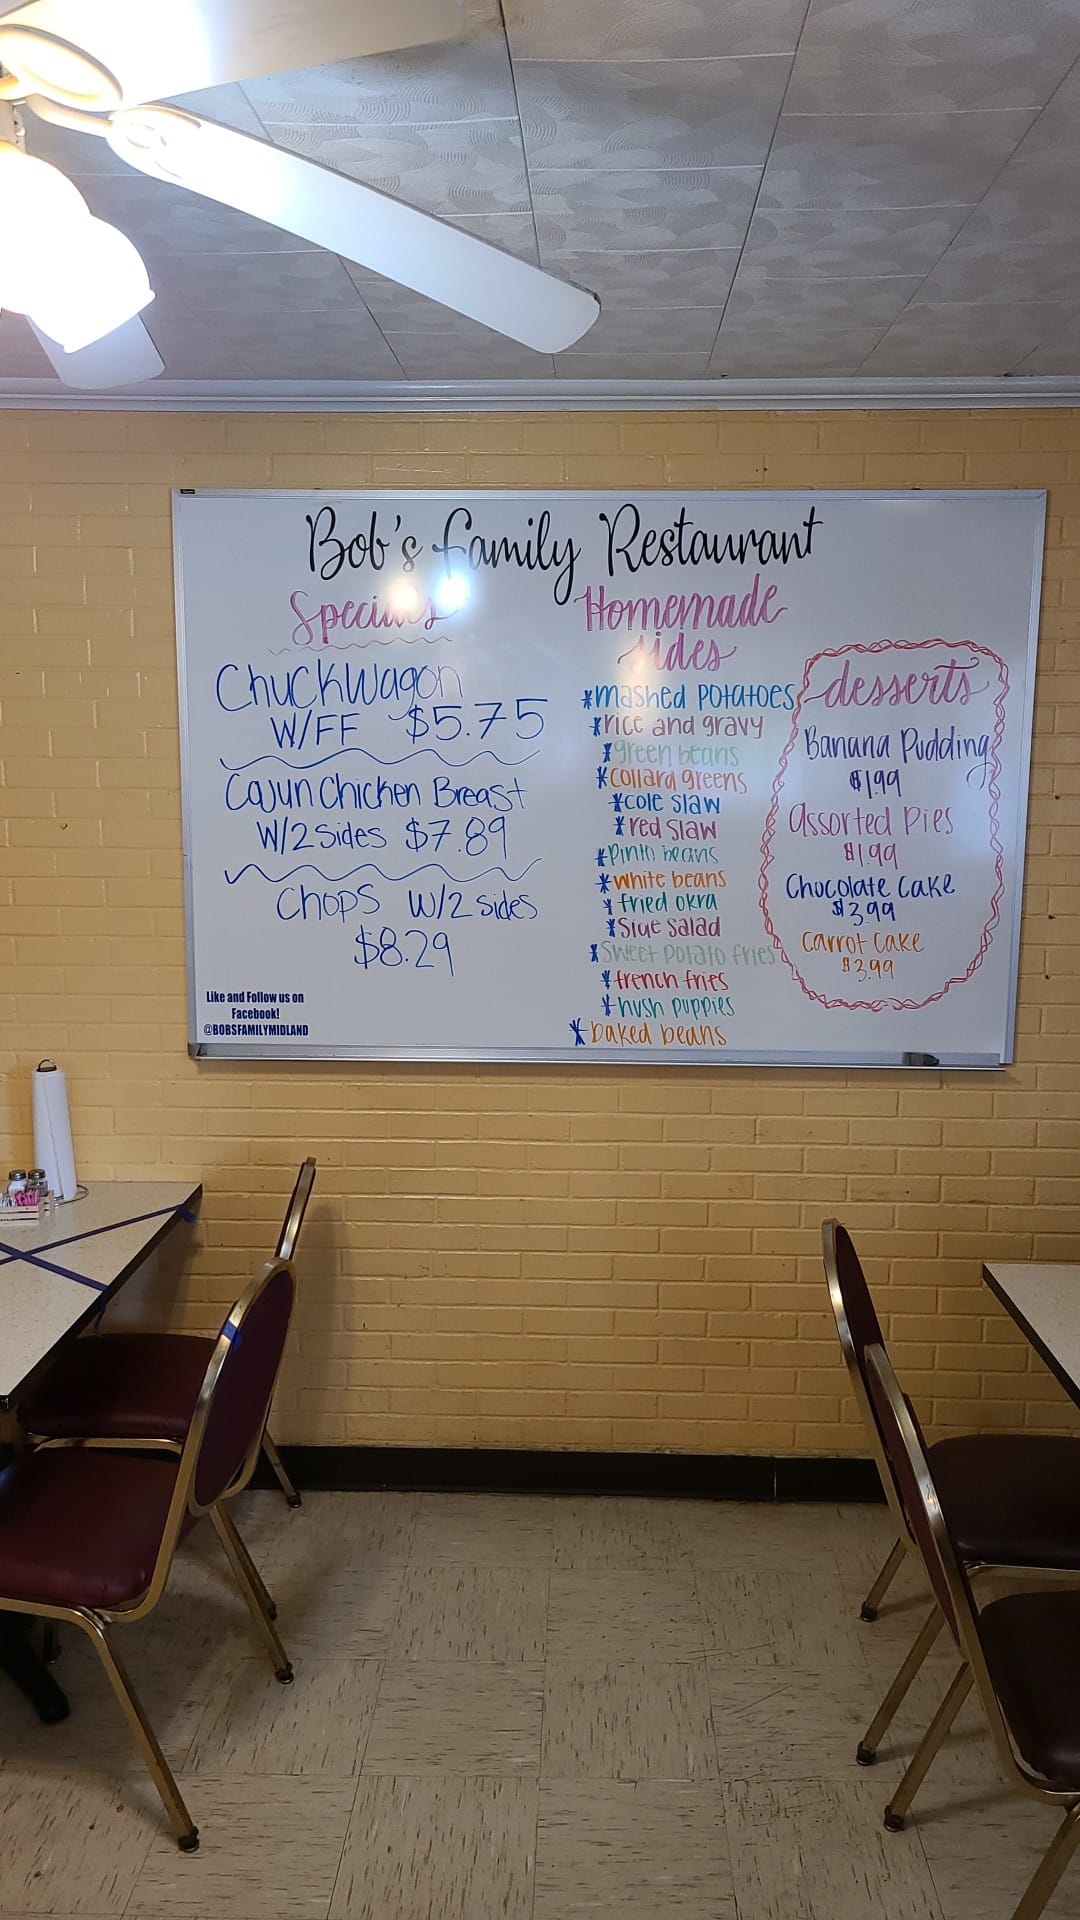 Bob's Family Restaurant
Specials
Chuckwagon
W/FF $5.75
Cajun Chicken Breast
W/2 sides $7.89
Chops W/2 sides
$8.29
Like and Follow us on
Facebook!
@BOBSFAMILYMIDLAND
Homemade
sides
*mashed potatoes
*rice and gravy
*green beans
*collard greens
*cole slaw
*red slaw
*pinto beans
*white beans
*fried okra
*Side salad
*Sweet potato fries
*french fries
*hush puppies
*baked beans
desserts
Banana Pudding
$1.99
assorted pies
$1.99
Chocolate Cake
$3.99
Carrot Cake
$3.99